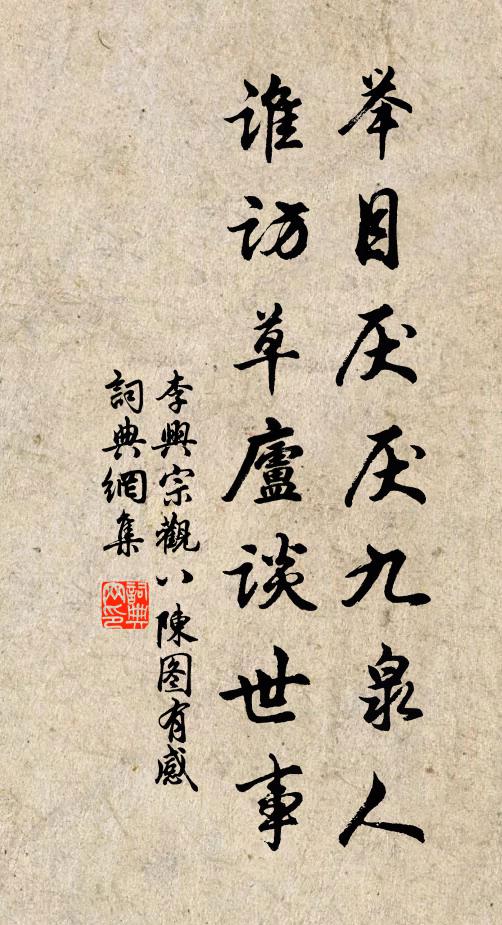 举目厌厌九泉人
谁访草廬谈世事
李興宗觀八陳图有感
詞典網集
詞典网印